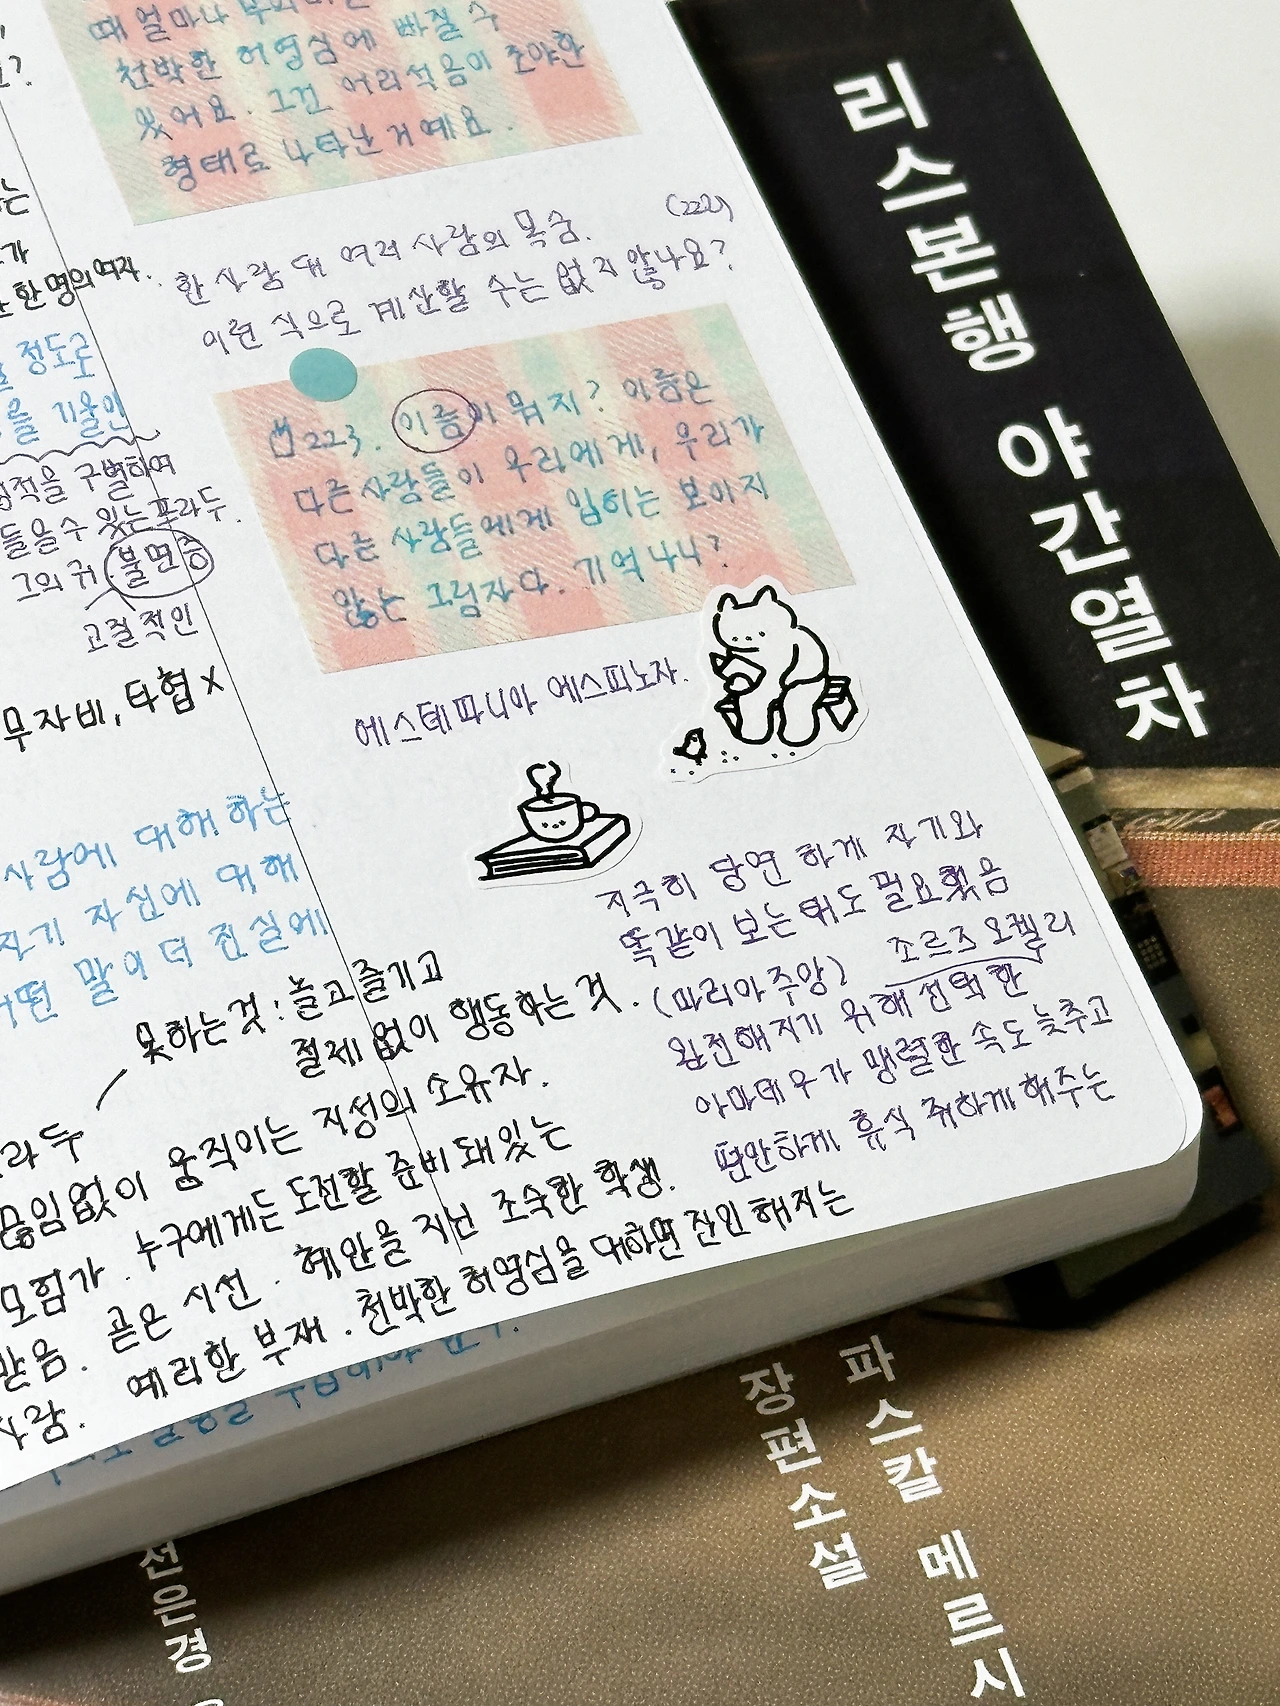 때 얼마나
천박한 허영심에 빠질 수
있어요. 그건 어리석음이 조야한
형태로 나타난 거예요.
(222)
한 사람 대 여러 사람의 목숨.
이런 식으로 계산할 수는 없지 않나요?
223. 이름이 뭐지? 이름은
다른 사람들이 우리에게, 우리가
다른 사람들에게 입히는 보이지
않는 그림자다. 기억나니?
에스테파니아 에스피노자.
지극히 당연하게 자기와
똑같이 보는 태도 필요했음
(마리아 주앙) 조르즈 오켈리
완전해지기 위해 선택한
아마데우가 맹렬한 속도 늦추고
편안하게 휴식 취하게 해주는
는
가
한 명의 여자.
정도로
기울인
구별하여
들을 수 있는 프라두.
그의 귀 불면증
고질적인
무자비, 타협 X
사람에 대해 하는
자기 자신에 대해
어떤 말이 더 진실에
못하는 것 : 놀고 즐기고
절제 없이 행동하는 것.
라두
끊임없이 움직이는 지성의 소유자.
모험가. 누구에게든 도전할 준비 돼있는
받음. 곧은 시선. 혜안을 지닌 조숙한 학생.
사람. 예리한 부재. 천박한 허영심을 대하면 잔인해지는
리스본행 야간열차
파스칼 메르시
장편소설
전은경